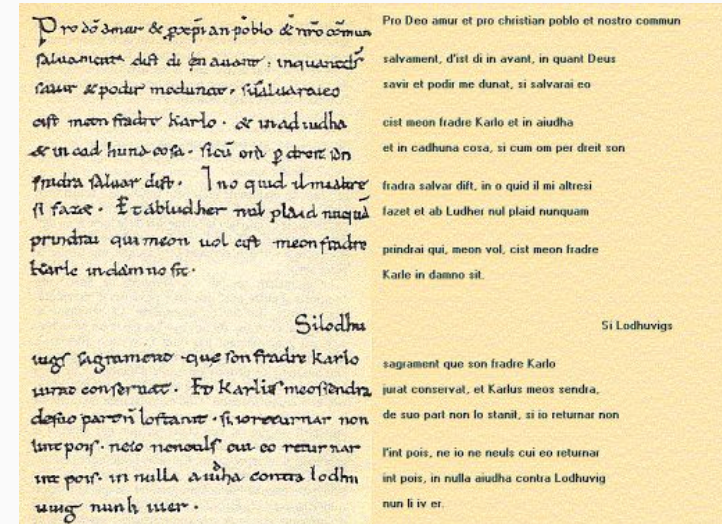 Pro dõ amur & p xp̃ian poblo & nr̃o cõmun
saluament. dist di en auant. inquantd̃s
sauir & podir medunat. sisaluaraieo
cist meon fradre Karlo. & in ad iudha
& in cad huna cosa. sicũ om̃ p dreit son
fradra saluar dist. Ino quid il mialtre
si fazet. Et abludher nul plaid nũquã
prindrai qui meon uol cist meonfradre
Karle in damno sit.
Silodhu
uigs sagrament. que son fradre Karlo
iurat conseruat. Et Karlus meossendra
desuo partñ lostanit. si ioreturnar non
lint pois. neio neneuls cui eo returnar
int pois. in nulla aiudha contra lodhu
uuig nunli iuer.
Pro Deo amur et pro christian poblo et nostro commun
salvament, d'ist di in avant, in quant Deus
savir et podir me dunat, si salvarai eo
cist meon fradre Karlo et in aiudha
et in cadhuna cosa, si cum om per dreit son
fradra salvar dift, in o quid il mi altresi
fazet et ab Ludher nul plaid nunquam
prindrai qui, meon vol, cist meon fradre
Karle in damno sit.
Si Lodhuvigs
sagrament que son fradre Karlo
jurat conservat, et Karlus meos sendra,
de suo part non lo stanit, si io returnar non
l'int pois, ne io ne neuls cui eo returnar
int pois, in nulla aiudha contra Lodhuvig
nun li iv er.